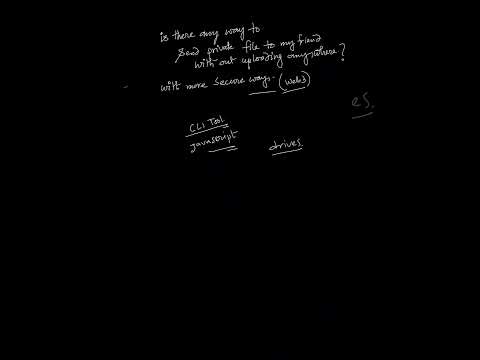 is there any way to
Send private file to my friend
with out uploading anywhere?
with more secure ways. (web3)
es.
CLI Tool
Javascript
drives